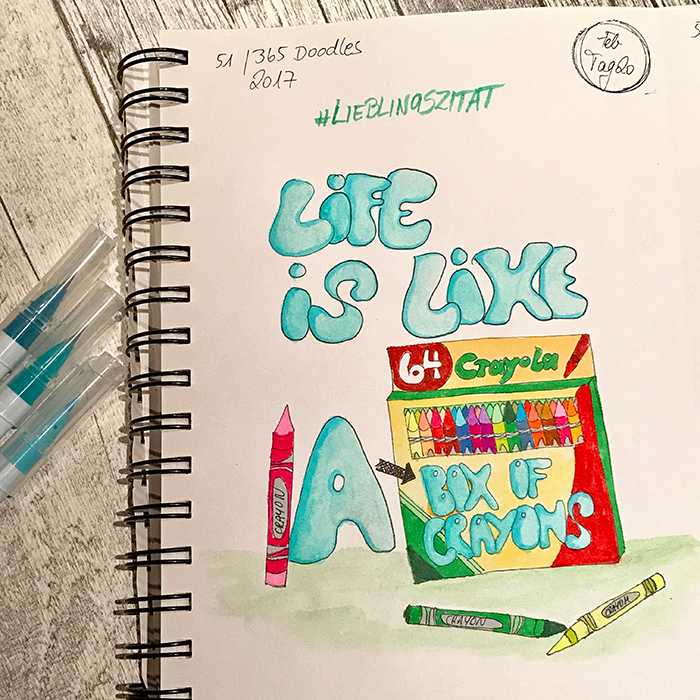 51 / 365 Doodles
2017
Feb
Tag 20
#LIEBLINGSZITAT
LiFE
iS LiKE
A
64 Crayola
BOX OF
CRAYONS
CRAYON
CRAYON
CRAYON